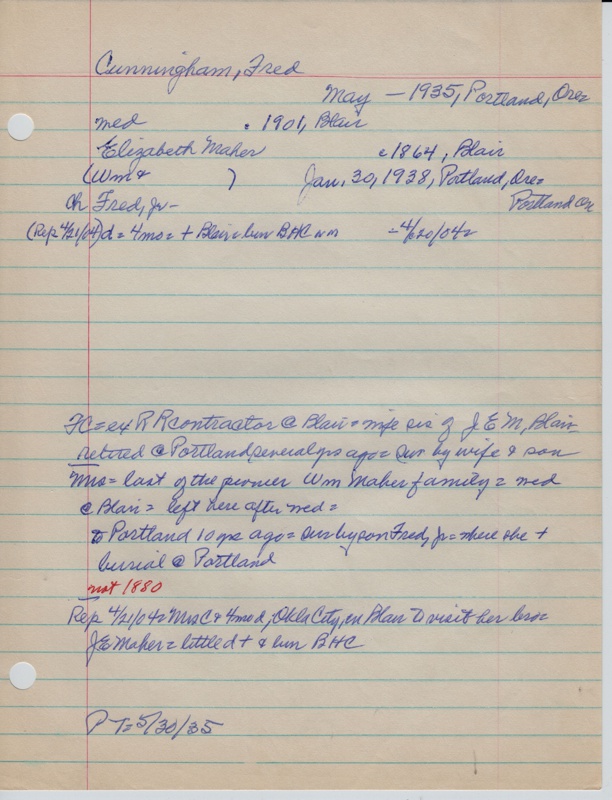 Cunningham, Fred
May — 1935, Portland, Ore=
med c 1901, Blair
Elizabeth Maher c 1864, Blair
(Wm & ) Jan. 30, 1938, Portland, Ore=
Ch Fred, Jr — Portland Ore
(Rep 4/21/04) d = 4 mo = + Blair = bur BHC nm = 4/20/04 =
FC = ex RR contractor @ Blair = wife sis of J E M, Blair
retired @ Portland, several yrs ago = sur by wife & son
Mrs = last of the pioneer Wm Maher family = med
@ Blair = left here after med =
to Portland 10 yrs ago = sur by son Fred, Jr = where she +
burial @ Portland
not 1880
Rep 4/21/04 = Mrs C & 4 mo d, Okla City, in Blair to visit her bro =
J E Maher = little d + & bur BHC
P T = 5/30/35